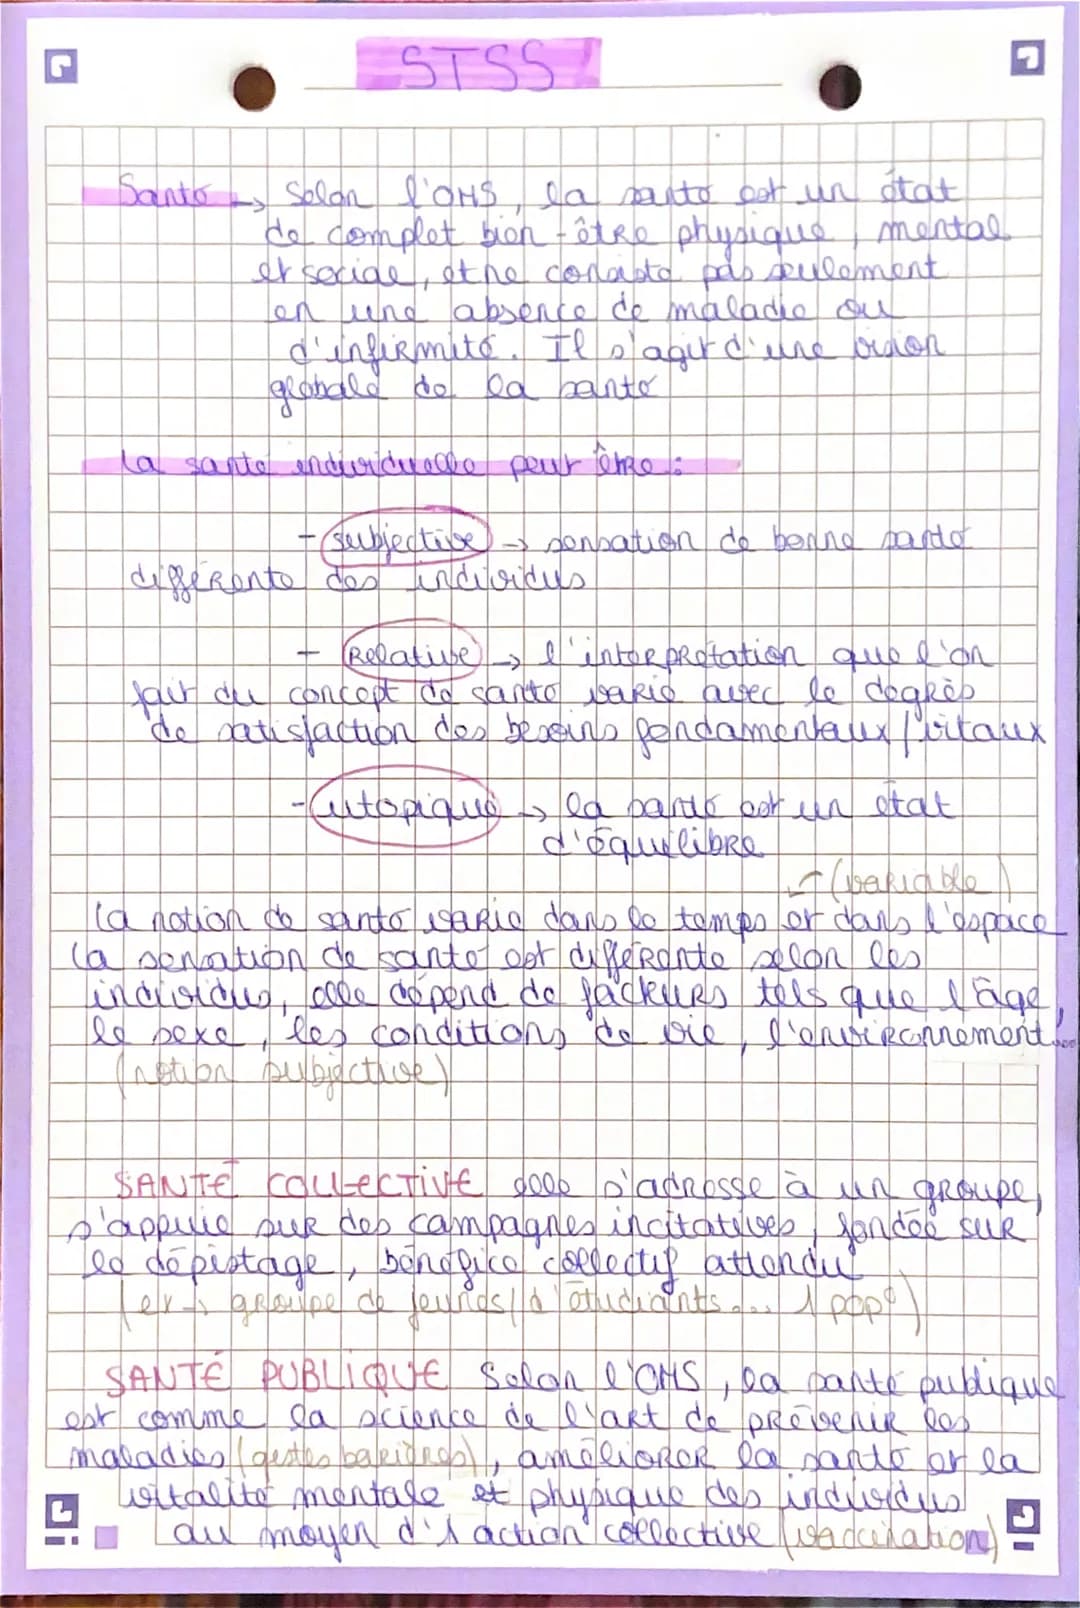 STSS
Santé → Selon l'OMS, la santé est un état
de complet bien-être physique, mental
et sociae, et ne consiste pas seulement
en une absence de maladie ou
d'infirmité. Il s'agit d'une vision
globale de la santé
La santé individuelle peut être :
- subjective → sensation de bonne santé
différente des individus
- Relative → l'interprétation que l'on
fait du concept de santé varie avec le degrès
de satisfaction des besoins fondamentaux/vitaux
- utopique → la santé est un état
d'équilibre
(variable)
La notion de santé varie dans le temps et dans l'espace
La sensation de santé est différente selon les
individus, elle dépend de facteurs tels que l'âge,
le sexe, les conditions de vie, l'environnement...
(notion subjective)
SANTÉ COLLECTIVE elle s'adresse à un groupe,
s'appuie sur des campagnes incitatives, fondée sur
le dépistage, bénéfice collectif attendu
(ex → groupe de jeunes/d'étudiants... 1 pop°)
SANTÉ PUBLIQUE Selon l'OMS, la santé publique
est comme la science de l'art de prévenir les
maladies (gestes barières), améliorer la santé et la
vitalité mentale et physique des individus
au moyen d'1 action collective (vaccination)